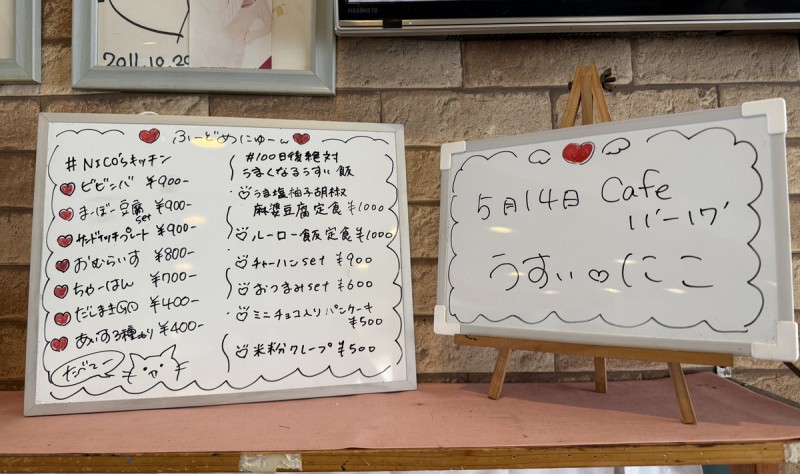 2011.10.29
ふーどめにゅーん
#NICO'sキッチン
ビビンバ ¥900-
まーぼー豆腐set ¥900-
サンドイッチプレート ¥900-
おむらいす ¥800-
ちゃーはん ¥700-
だしまき ¥400-
あいす3種もり ¥400-
たべてー
#100日後絶対
うまくなるうすい飯
うま塩柚子胡椒
麻婆豆腐定食 ¥1000
ルーロー飯定食 ¥1000
チャーハンset ¥900
おつまみset ¥600
ミニチョコ入りパンケーキ
¥500
米粉クレープ ¥500
5月14日 Cafe
11'-17'
うすい♡にこ